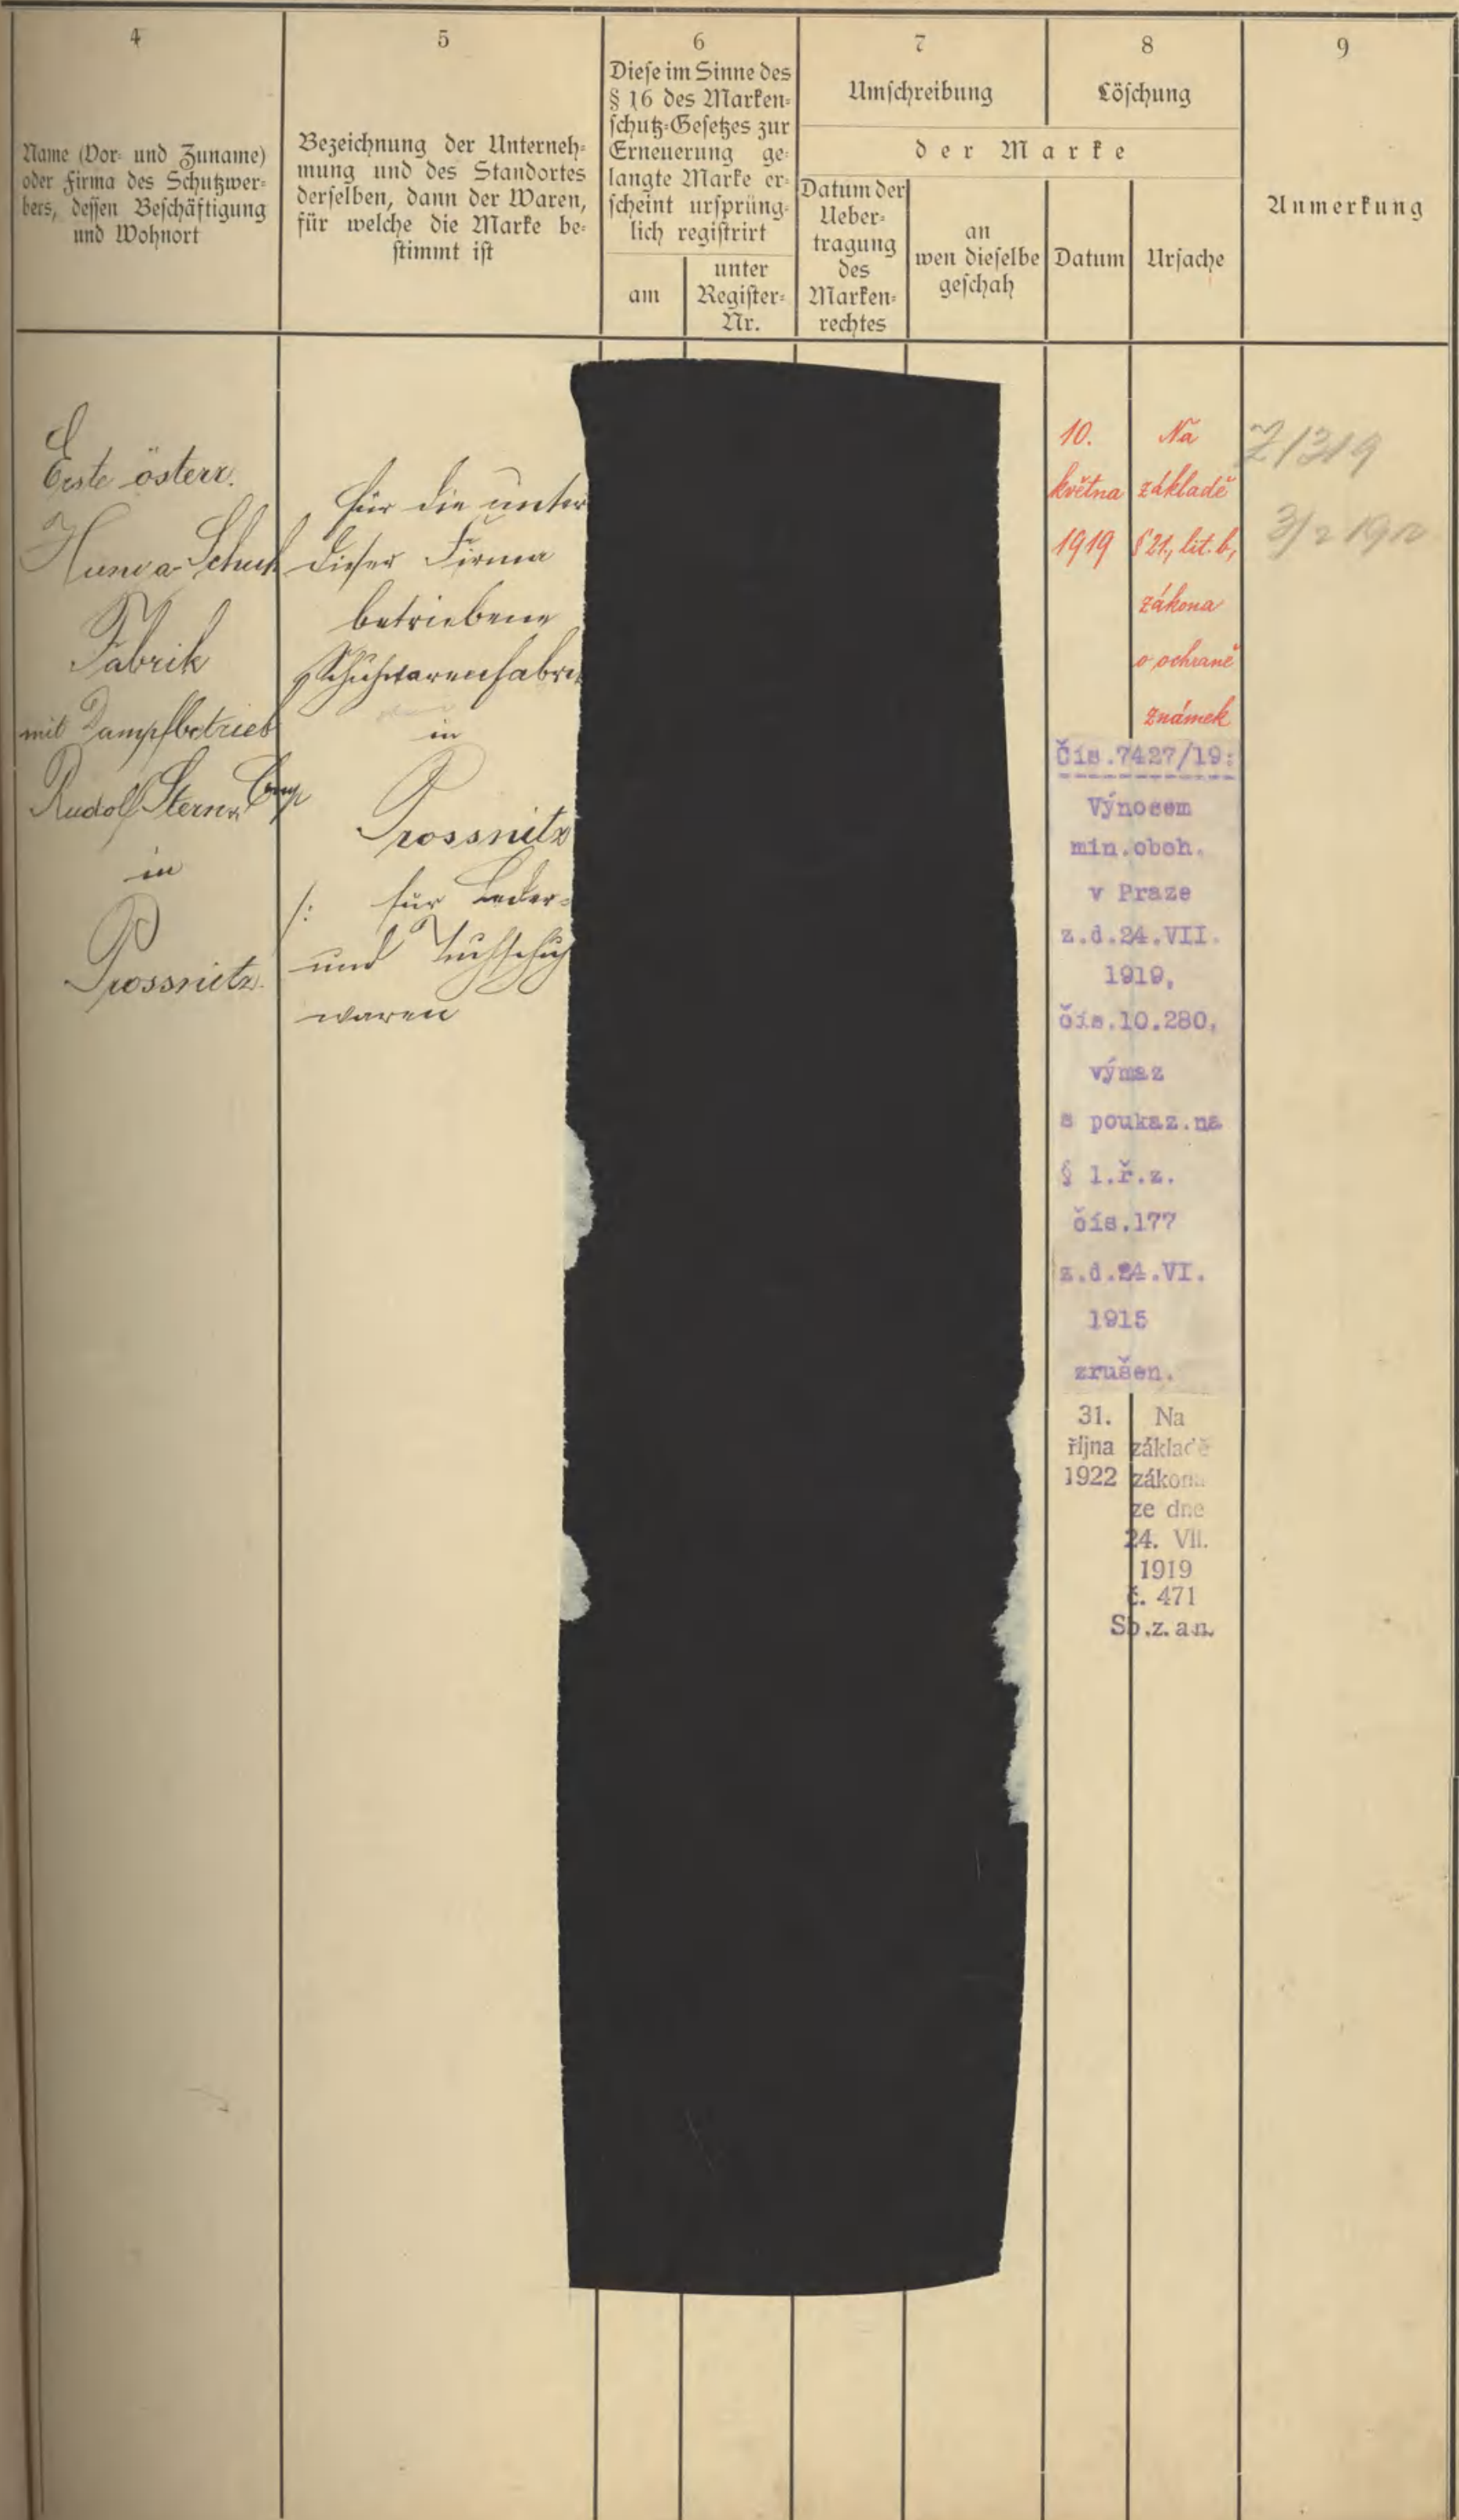 4
Name (Vor- und Zuname)
oder Firma des Schutzwer-
bers, dessen Beschäftigung
und Wohnort
5
Bezeichnung der Unterneh-
mung und des Standortes
derselben, dann der Waren,
für welche die Marke be-
stimmt ist
6
Diese im Sinne des
§ 16 des Marken-
schutz-Gesetzes zur
Erneuerung ge-
langte Marke er-
scheint ursprüng-
lich registrirt
am
unter
Register-
Nr.
7
Umschreibung
8
Löschung
der Marke
Datum der
Ueber-
tragung
des
Marken-
rechtes
an
wen dieselbe
geschah
Datum
Ursache
9
Anmerkung
Erste österr.
Schuh
Fabrik
mit Dampfbetrieb
Rudolf Stern & Comp
in
Prossnitz.
für die unter
dieser Firma
betriebene
Schuhwarenfabri
in
Prossnitz
/: für Leder-
und Tuchschuh
waren
10.
května
1919
Na
základě
§ 21., lit. b,
zákona
o ochraně
známek
Čís.7427/19:
Výnosem
min.obch.
v Praze
z.d.24.VII.
1919,
čís.10.280,
výmaz
s poukaz.na
§ 1.ř.z.
čís.177
z.d.24.VI.
1915
zrušen.
31.
října
1922
Na
základě
zákona
ze dne
24. VII.
1919
č. 471
Sb.z.a n.